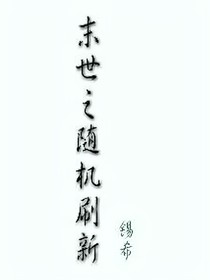 末世之随机刷新
锡希